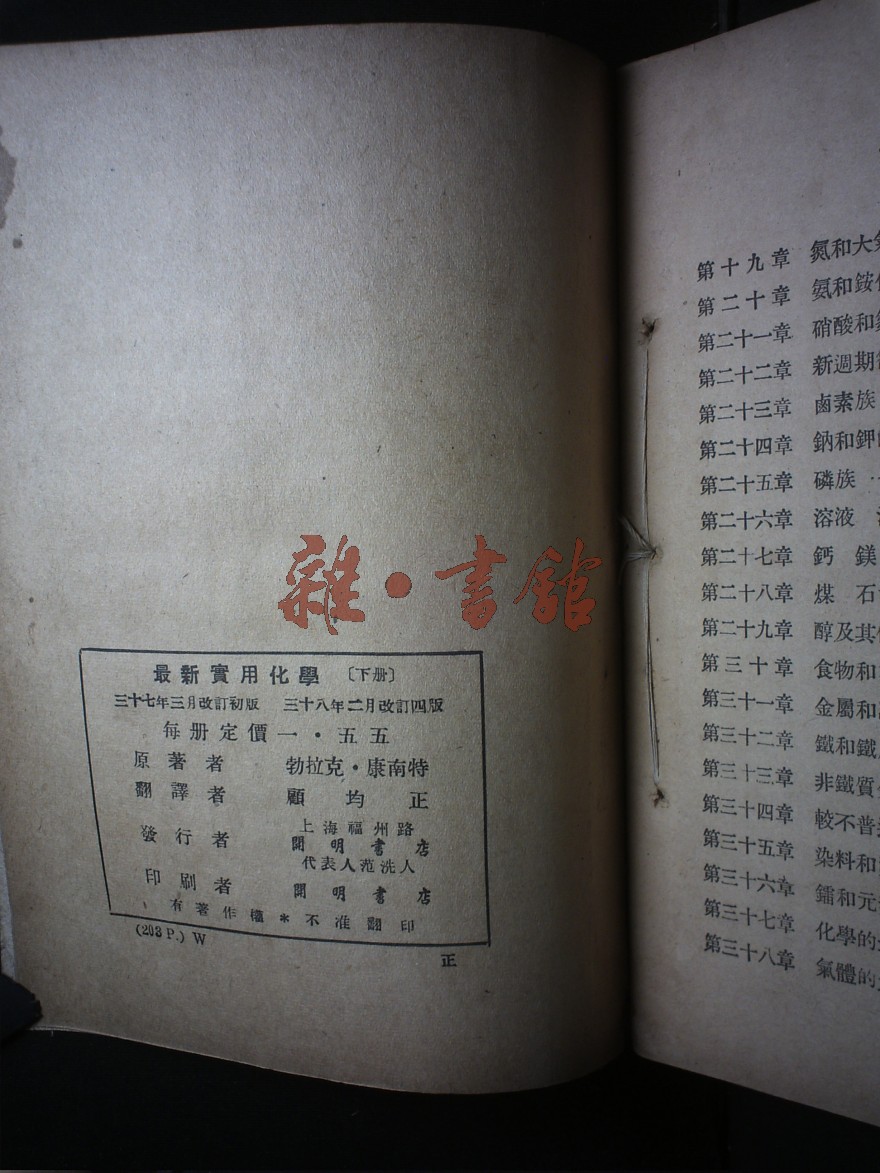 最新實用化學〔下册〕
三十七年三月改訂初版 三十八年二月改訂四版
每册定價一·五五
原著者 勃拉克·康南特
翻譯者 顧均正
發行者 上海福州路
開明書店
代表人范洗人
印刷者 開明書店
有著作權*不准翻印
(203 P.) W
正
雜·書館
第十九章 氮和大氣
第二十章 氨和銨
第二十一章 硝酸和
第二十二章 新週期
第二十三章 鹵素族
第二十四章 鈉和鉀
第二十五章 磷族
第二十六章 溶液
第二十七章 鈣 鎂
第二十八章 煤 石
第二十九章 醇及其
第三十章 食物和
第三十一章 金屬和
第三十二章 鐵和鐵
第三十三章 非鐵質
第三十四章 較不普
第三十五章 染料和
第三十六章 鐳和元
第三十七章 化學的
第三十八章 氣體的